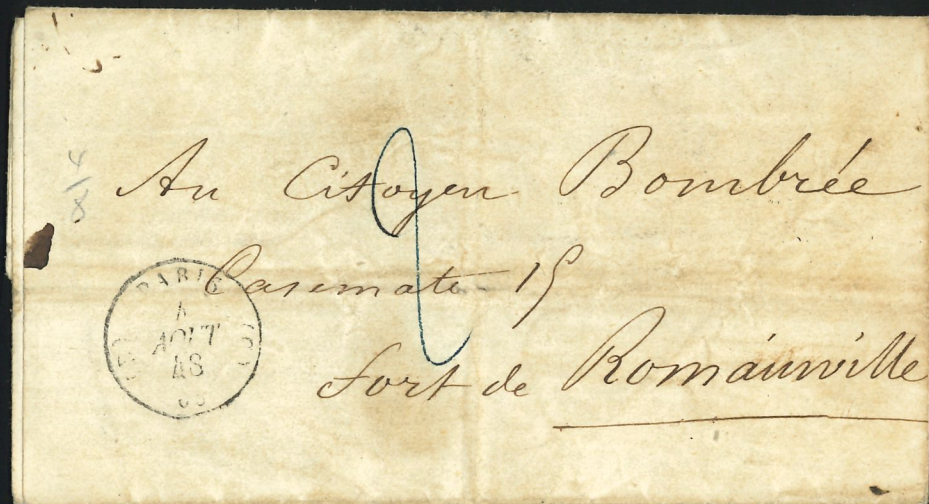 Au Citoyen Bombrée
Casemate 15
Fort de Romainville
2
PARIS
AOUT
48